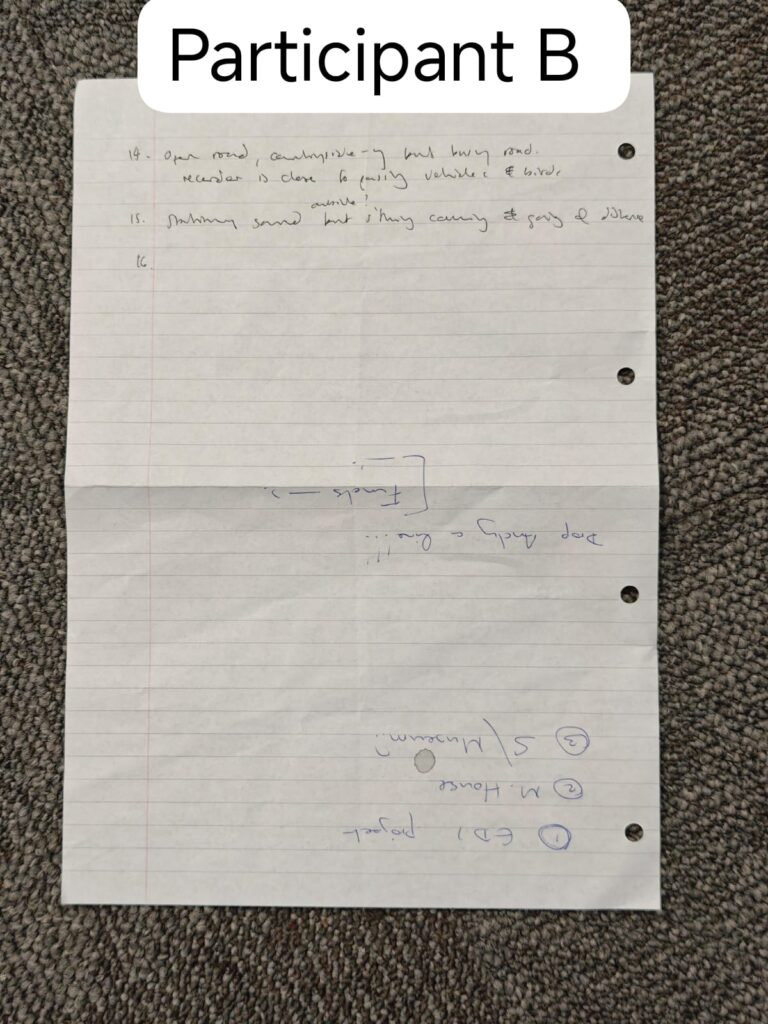 Participant B
14. Open road, countryside-y but busy road.
recorder is close to passing vehicles & birds
outside?
15. Stationary sound but s'thing coming & going of distance
16
① EDI project
② M. House
③ S/Museum?
Drop Andy a line!!!
Funds —